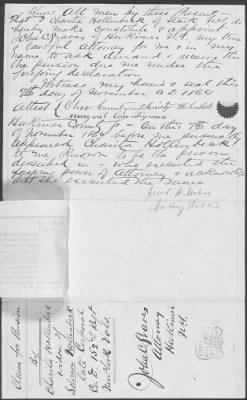 Know All men by these Presents
That I Charita Hollenbeck of Stark N.Y. do
hereby make Constitute & appoint
John C. Graves of Herkimer N.Y. my true
& lawful Attorney for me & in my
name to ask demand & receive the
pension due me under the
foregoing declaration
Witness my hand & seal this
day of November A.D. 1864
Attest
Herkimer County ss On this 7th day
of November 1864 before me personally
appeared Charita Hollenbeck
to me known to be the person
described in & who executed the
foregoing power of Attorney & acknowledged
that she executed the same
Notary Public
Claim for Pension
by
Charita Hollenbeck
widow of
Hollenbeck
late Corporal
Co. D. 152d Regt
New York Vols.
John C. Graves
Attorney
Herkimer
N.Y.